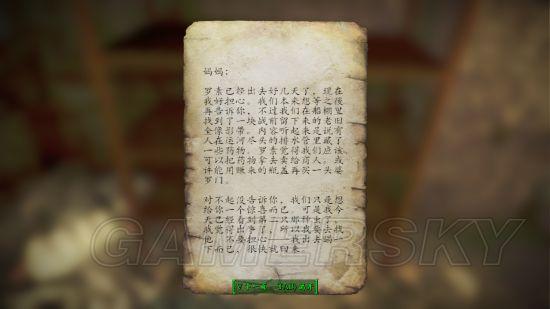 妈妈:
罗素已经出去好几天了，现在
我好担心。我们本来想等之後
再告诉你，不过我们在船棚里
找到了一块战前留下来的老旧
全像影带。内容听起来是说有
人在运河尽头的排水管里藏了
一些药物。罗素觉得我们应该
可以把药物拿去卖给商人。或
许能用赚来的瓶盖再买一头婆
罗门。
对不起没告诉你，我们只是想
给你一个惊喜而已，可是我今
天已经看到第二只那种虫了，
我觉得出事了，所以我要去找
他。不要担心——我出去一
下而已，很快就回来。
GAMERSKY